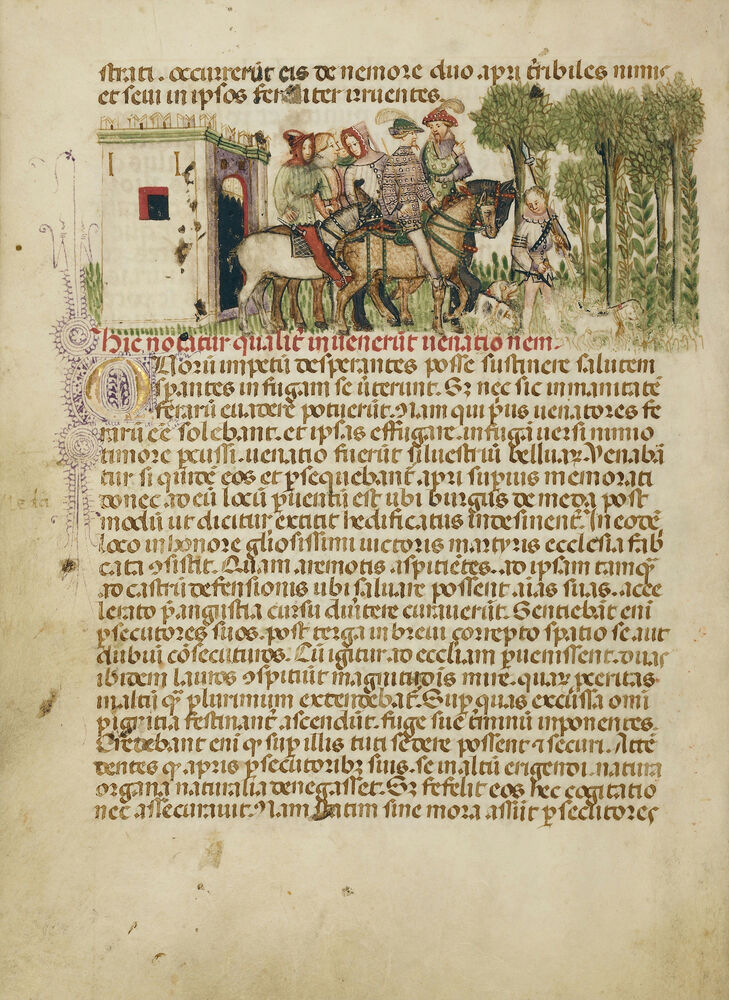 strati. occurrerūt eis de nemore duo apri t̄ribiles nimis
et seui in ipsos feraliter irruentes
Hic notatur qualit̄ inuenerūt uenationem.
Quorū impetū desperantes posse sustinere salutem
sperantes in fugam se ūterunt. Sꝫ nec sic inmanitatē
ferarū euadere potuerūt. Nam qui p̄us uenatores fe
rarū eē solebant. et ipsas effugare. in fugā uersi nimio
timore ꝑcussi. uenatio fuerūt siluestriū belluaꝝ. Venabā
tur si quidē eos et ꝑsequebant. apri suꝑius memorati
donec ad eū locū ꝑuentū est ubi burgus de meda post
modū ut dicitur extitit hedificatus indesinent̄. In eodē
loco in honore gl̄iosissimi uictoris martyris ecclesia fab
cata ꝯsistit. Quam a remotis aspitiētes. ad ipsam tamqͣ
ad castrū defensionis ubi saluare possent aīas suas. acce
lerato p̄ angustia cursu diūtere curauerūt. Sentiebāt enī
ꝑsecutores suos. post terga in breui correpto spatio se aut
dubiū cōsecuturos. Cū igitur ad eccl̄iam ꝑuenissent. duas
ibidem lauros ꝯspitiūt magnitudīs mire. quaꝝ ꝑceritas
in altū qͣ plurimum extendebat̄. Suꝑ quas excussa omī
pigritia festinant̄ ascendūt. fuge sue t̄minū inponentes.
Credebant enī ꝙ suꝑ illis tuti sedere possent ⁊ securi. Attē
dentes ꝙ apris ꝑsecutoribꝫ suis. se in altū erigendi. natura
organa naturalia denegasset. Sꝫ fefelit eos hec cogitatio
nec assecurauit. Nam statim sine mora assūt ꝑsecutores